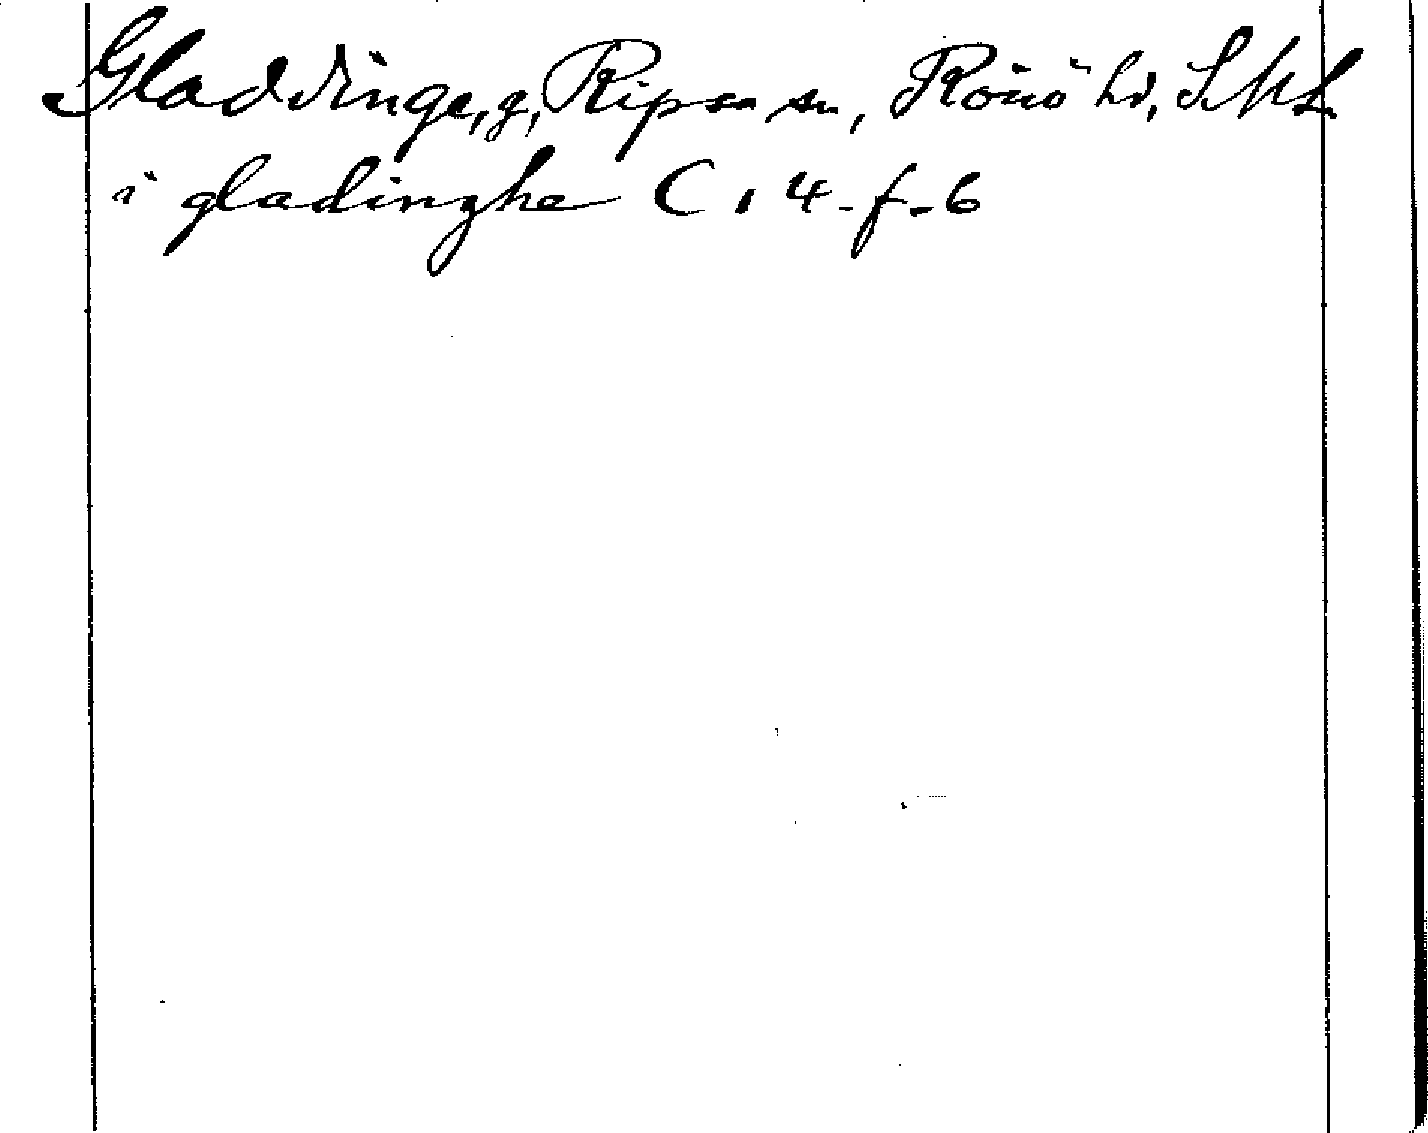 Gladdinge, g, Ripsa sn, Rönö hd, SML
i gladinghe C 14-f-6